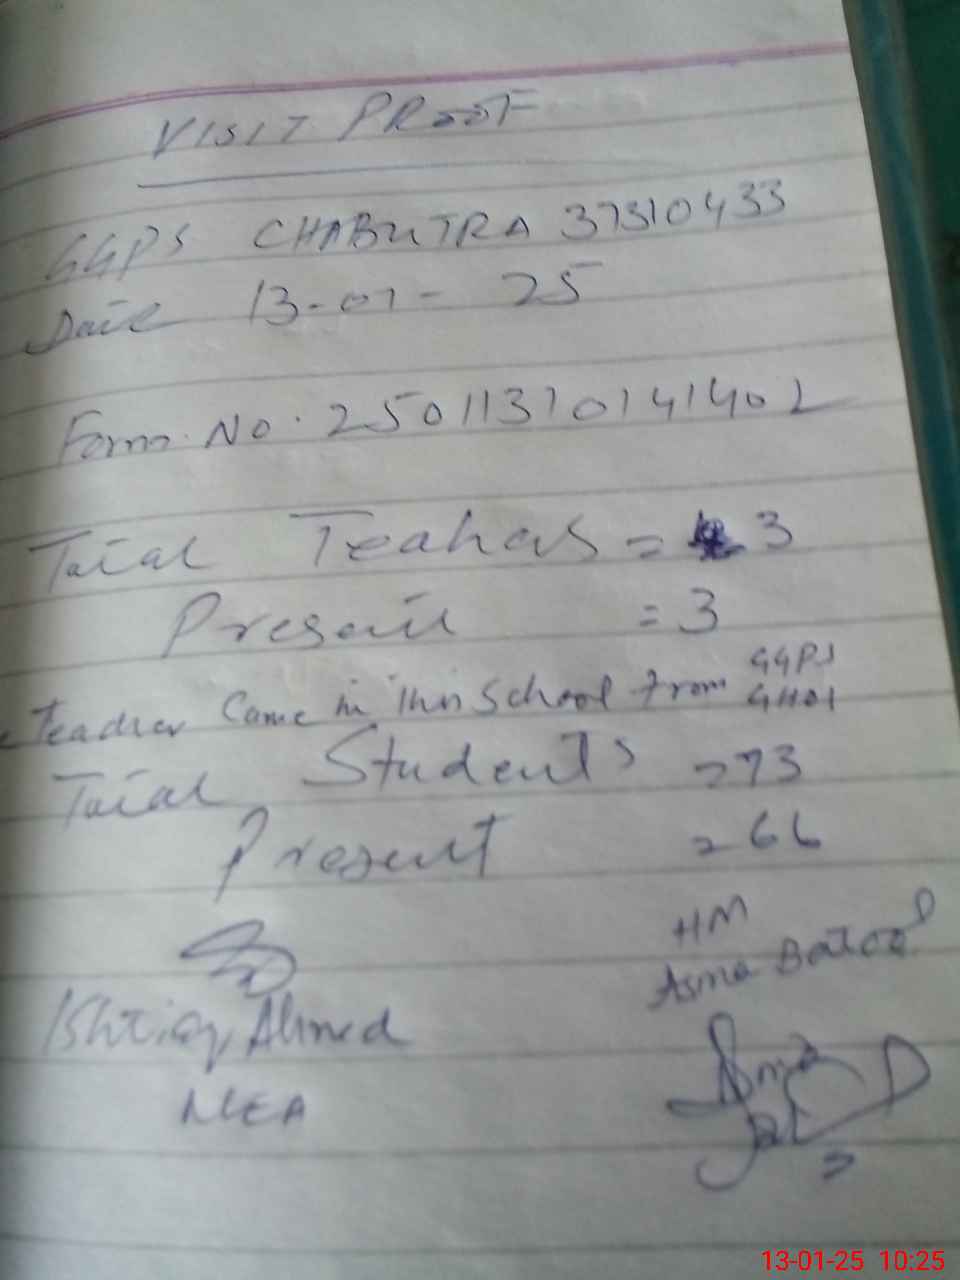 VISIT PROOF
GGPS CHABUTRA 37310433
Date 13-01-25
Form No. 25011310141402
Total Teahers = 3
Present = 3
Teacher Came in this School from GGPS
Total Students = 73
Present = 66
HM
Asma Batool
Ishtiaq Ahmed
MEA
13-01-25 10:25